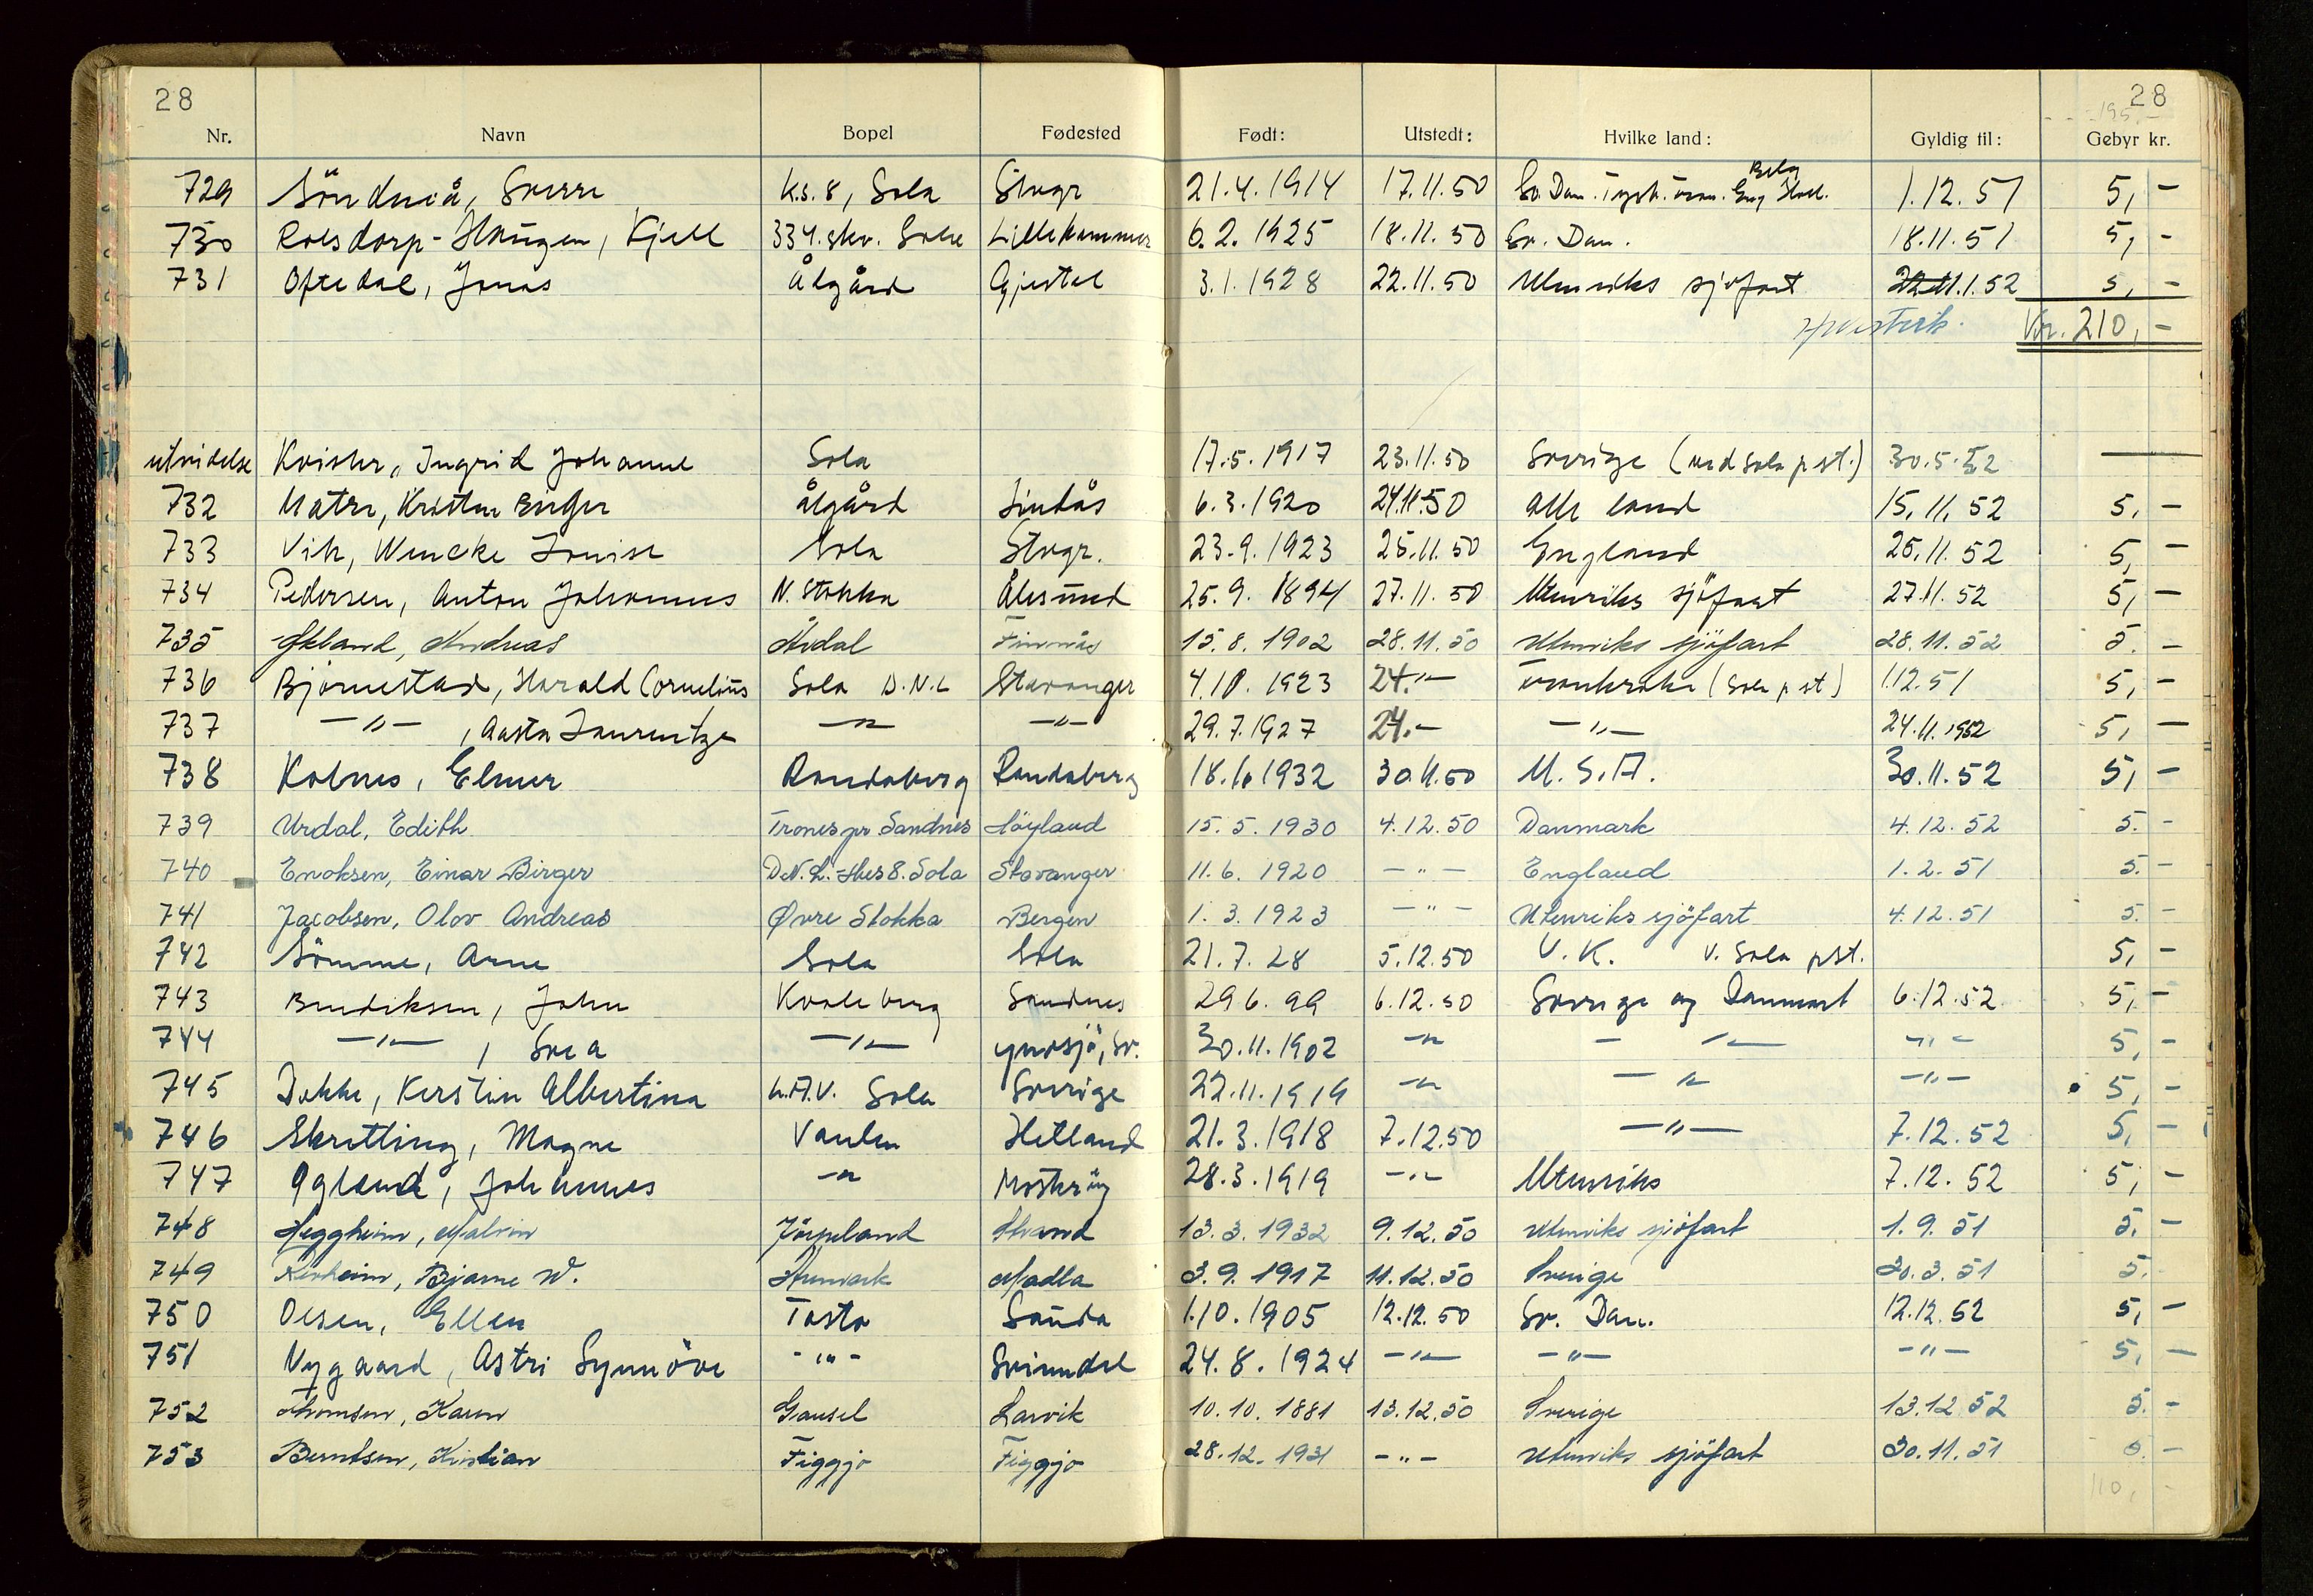 28 28
Nr. Navn Bopel Fødested Født: Utstedt: Hvilke land: Gyldig til: Gebyr kr.
729 Söndniå, Sverre K.S. 8, Sola Stvgr 21.4.1914 17.11.50 Sv. Dan. Tysk. Eng Belg Holl. 1.12.51 5,-
730 Rolsdorp-Haugen, Kjell 334. skv. Sola Lillehammer 6.2.1925 18.11.50 Sv. Dan. 18.11.51 5,-
731 Oftedal, Jonas Ålgård Gjestal 3.1.1928 22.11.50 Utenriks sjöfart 1.1.52 5,-
Kr. 210,-
utvidelse Ingrid Johanne Sola 17.5.1917 23.11.50 Sverige (ved Sola p.st.) 30.5.52 —
732 Matre, Kristen Birger Ålgård Lindås 6.3.1920 24.11.50 alle land 15.11.52 5,-
733 Vik, Wencke Louise Sola Stvgr. 23.9.1923 25.11.50 England 25.11.52 5,-
734 Pedersen, Anton Johannes N. Stokka Ålesund 25.9.1894 27.11.50 Utenriks sjöfart 27.11.52 5,-
735 Økland, Andreas Årdal Finnås 15.8.1902 28.11.50 Utenriks sjöfart 28.11.52 5.-
736 Björnestad, Harald Cornelius Sola D.N.L Stavanger 4.10.1923 24.-"- Frankrike (Sola p st) 1.12.51 5,-
737 -"- , Aasta Lauritze -"- -"- 29.7.1927 24.- -"- 24.11.1952 5,-
738 Kolnes, Elmer Randaberg Randaberg 18.6.1932 30.11.50 U.S.A. 30.11.52 5,-
739 Urdal, Edith Trones pr Sandnes Höyland 15.5.1930 4.12.50 Danmark 4.12.52 5.-
740 Enoksen, Einar Birger D.N.L. Hus 8. Sola Stavanger 11.6.1920 -"- England 1.2.51 5.-
741 Jacobsen, Olav Andreas Øvre Stokka Bergen 1.3.1923 -"- Utenriks sjöfart 4.12.51 5.-
742 Sömme, Arne Sola Sola 21.7.28 5.12.50 U.K. v. Sola pst. 5,-
743 Bendiksen, John Kvaleberg Sandnes 29.6.99 6.12.50 Sverige og Danmark 6.12.52 5,-
744 -"- , Svea -"- Sv. 30.11.1902 -"- -"- -"- 5,-
745 Dokke, Kerstin Albertina Sola Sverige 22.11.1919 -"- -"- -"- 5,-
746 Skretting, Magne Vaulen Hetland 21.3.1918 7.12.50 -"- 7.12.52 5,-
747 Ogland, Johannes -"- 28.3.1919 -"- Utenriks 7.12.52 5,-
748 Heggheim, Malvin Jörpeland Strand 13.3.1932 9.12.50 Utenriks sjöfart 1.9.51 5.-
749 Bjarne W. Madla 3.9.1917 11.12.50 Sverige 30.3.51 5.
750 Olsen, Ellen Tasta Sauda 1.10.1905 12.12.50 Sv. Dan. 12.12.52 5,-
751 Nygaard, Astri Synnöve -"- Svinndal 24.8.1924 -"- -"- -"- 5,-
752 Thomsen, Karen Gausel Larvik 10.10.1881 13.12.50 Sverige 13.12.52 5.-
753 Berntsen, Kristian Figgjo Figgjo 28.12.1931 -"- Utenriks sjöfart 30.11.51 5.-
110,-